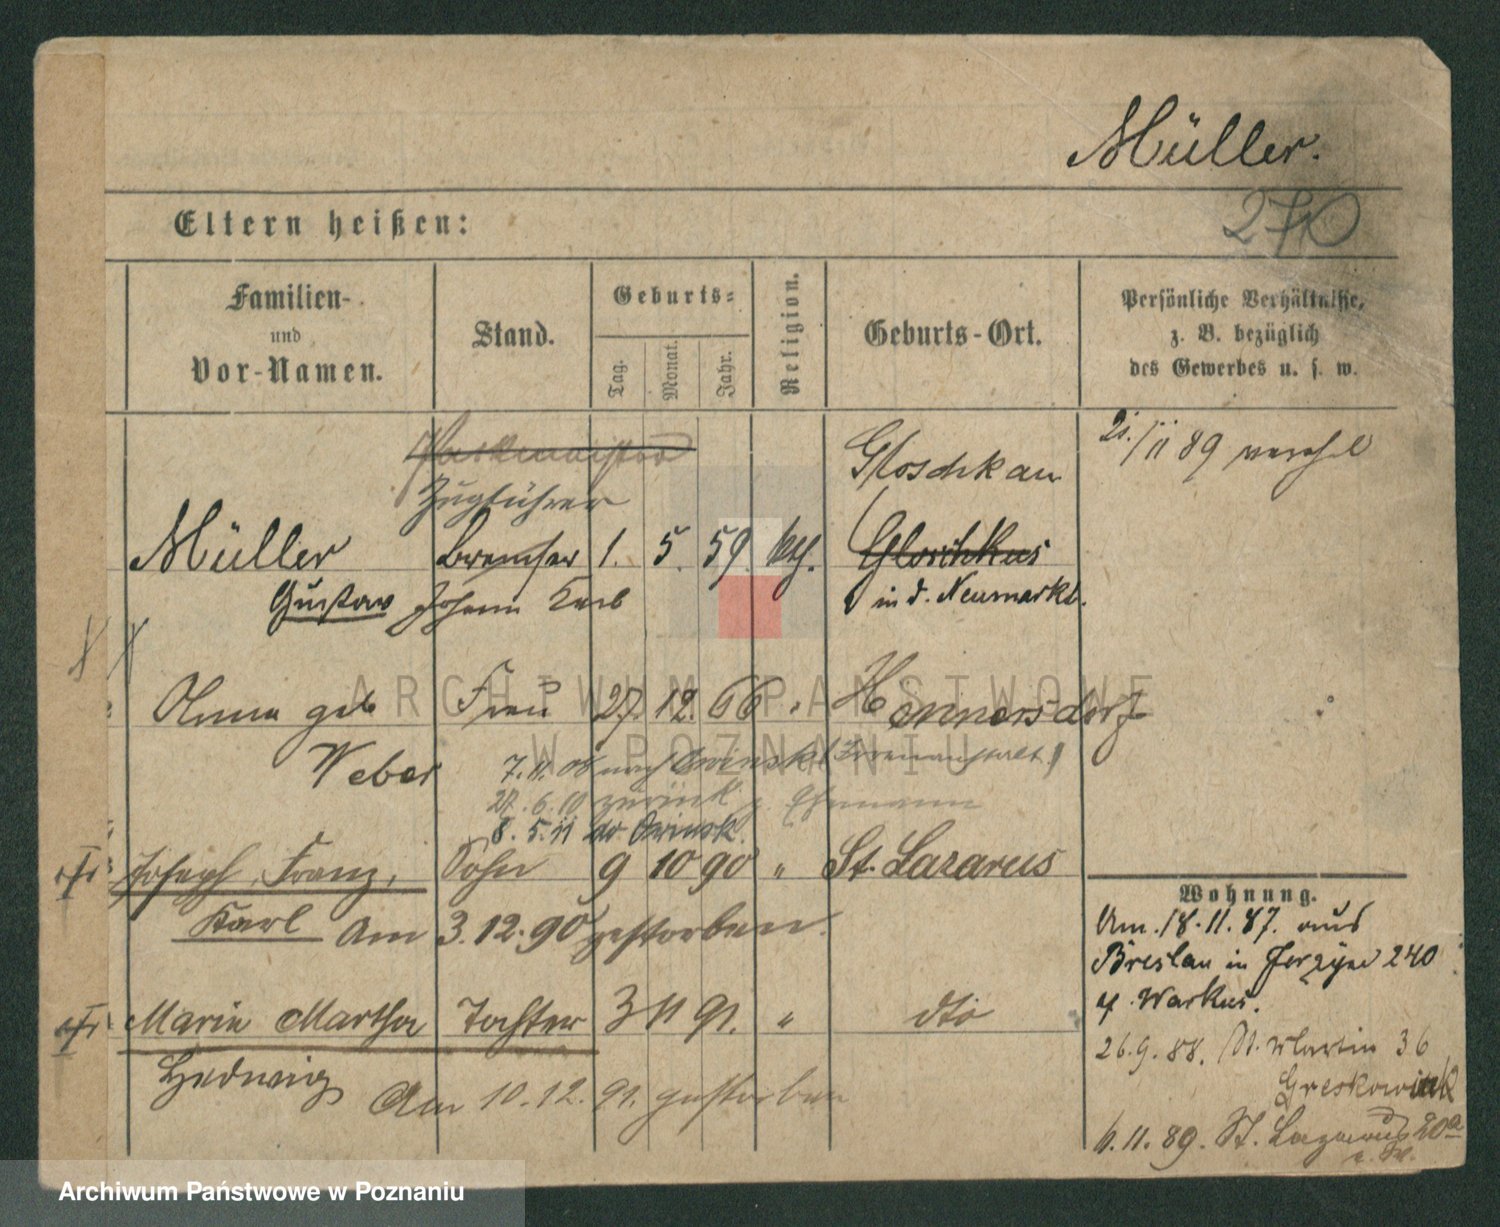 Müller.
270
Eltern heißen:
Familien-
und
Vor-Namen.
Stand.
Geburts-
Tag.
Monat.
Jahr.
Religion.
Geburts-Ort.
Persönliche Verhältnisse,
z. B. bezüglich
des Gewerbes u. s. w.
Packmeister
Zugführer
Müller Bremser 1. 5. 59. kth.
Gloschkau
Gloschkus
in d. Neumarkt.
Gustav Johann Karl
/11 89
Anna geb Frau 27. 12. 66 " Hennersdorf
Weber
7. 11. 08 nach Owinsk (Irrenanstalt)
27. 6. 10 zurück z. Ehemann
8. 5. 11 do Owinsk.
Joseph, Franz, Sohn 9 10 90 " St. Lazarus
Karl Am 3. 12. 90 gestorben.
Marie Martha Tochter 3 11 91. " dto
Hedwig Am 10. 12. 91. gestorben
Wohnung.
Am. 18. 11. 87. aus
Breslau in Jerzyce 240
Warkus.
26. 9. 88. St. Martin 36
11. 89. St. Lazarus 20a
ARCHIWUM PAŃSTWOWE
W POZNANIU
Archiwum Państwowe w Poznaniu